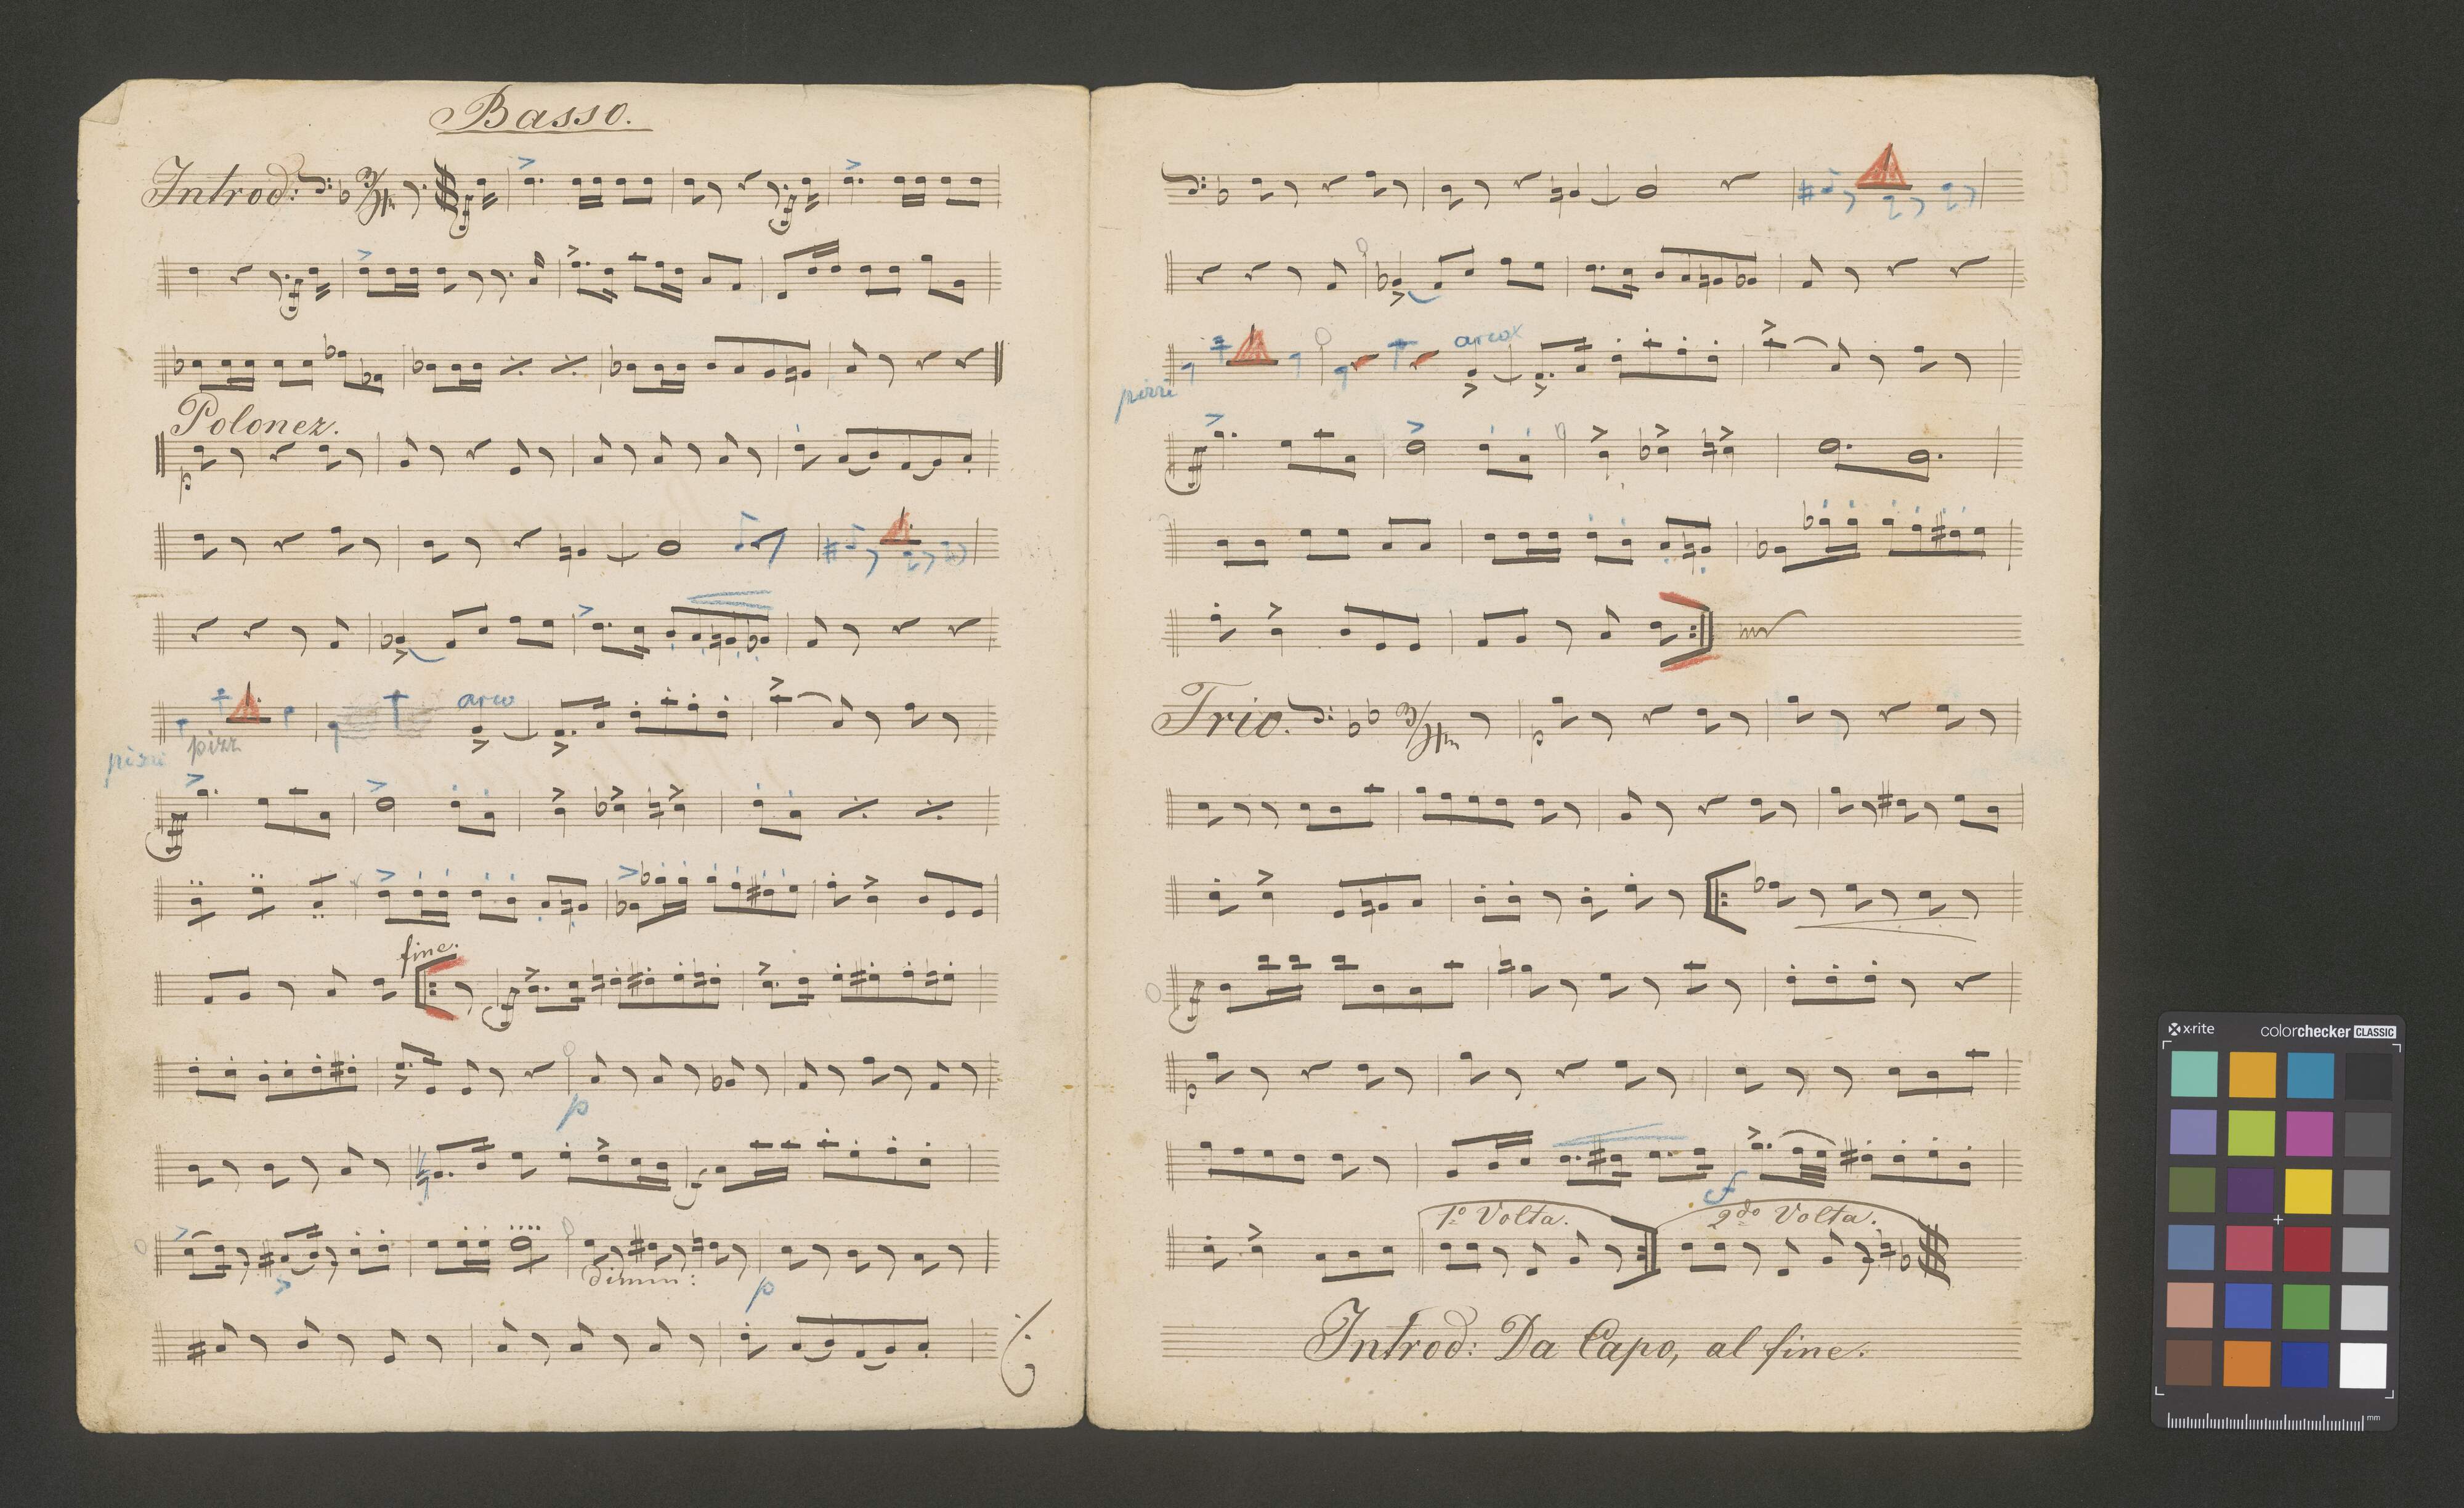 Basso.
Introd: 3/4
Polonez.
p
pizzi pizz arco
fine.
p
dimin: p
pizzi arco
Trio. 3/4
p
p
f
1º Volta. 2do Volta.
Introd: Da Capo, al fine.
x-rite colorchecker CLASSIC
mm